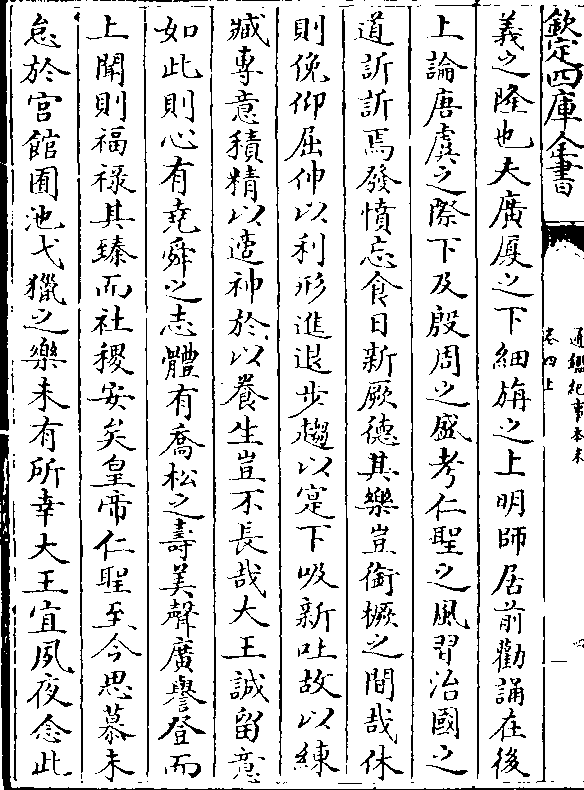 欽定四庫全書
通鑑紀事本末
卷四上
義之隆也夫廣厦之下細旃之上明師居前勸誦在後
上論唐虞之際下及殷周之盛考仁聖之風習治國之
道訢訢焉發憤忘食日新厥德其樂豈銜橛之間哉休
則俛仰屈伸以利形進退步趨以寔下吸新吐故以練
臧專意積精以適神於以養生豈不長哉大王誠留意
如此則心有堯舜之志體有喬松之壽美聲廣譽登而
上聞則福禄其臻而社稷安矣皇帝仁聖至今思慕未
怠於宫館囿池弋獵之樂未有所幸大王宜夙夜念此